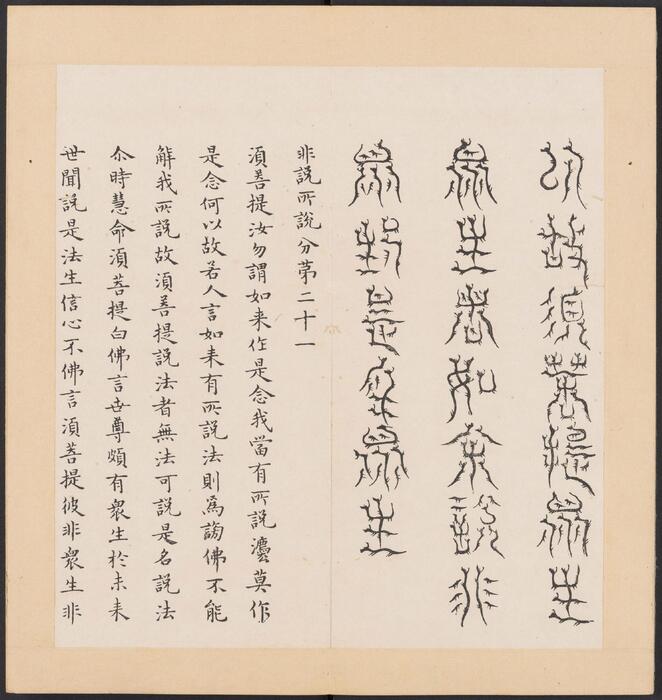 以故須菩提衆生
衆生者如來說非
衆生是名衆生
非說所說分苐二十一
須菩提汝勿謂如来作是念我當有所說灋莫作
是念何以故若人言如来有所說法則爲謗佛不能
解我所說故須菩提說法者無法可說是名說法
尒時慧命須菩提白佛言世尊頗有衆生於未来
世聞說是法生信心不佛言須菩提彼非衆生非